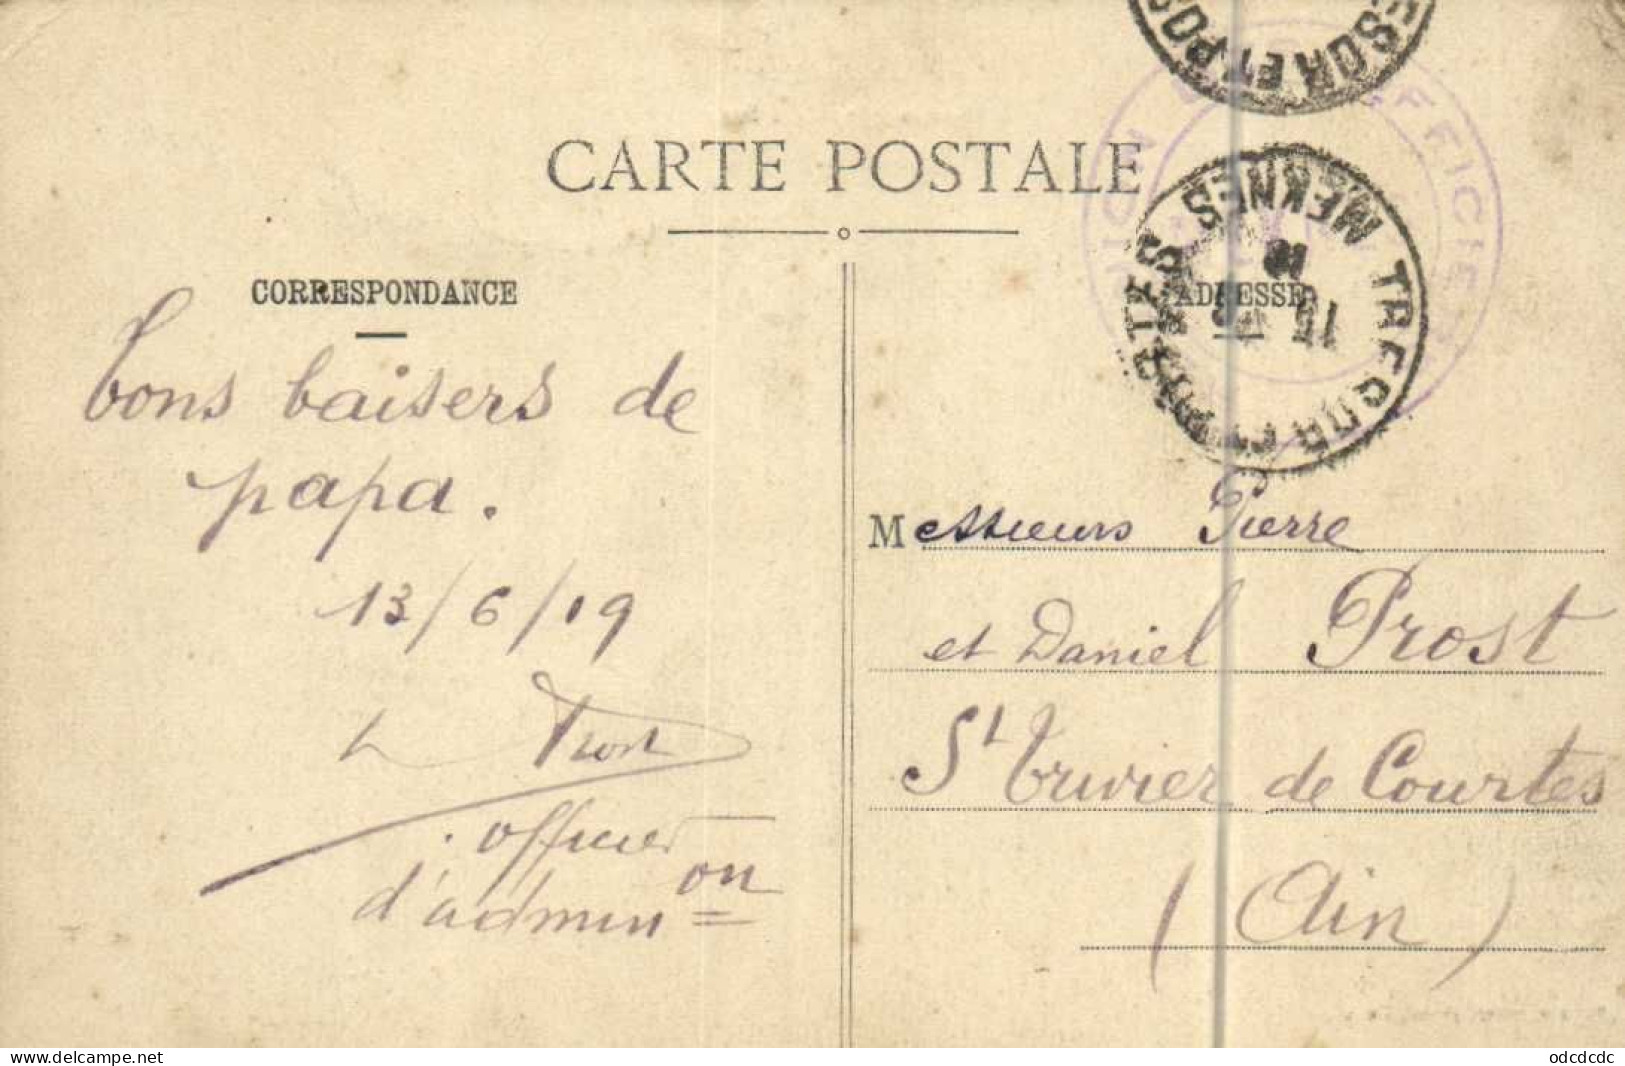 CARTE POSTALE
CORRESPONDANCE
bons baisers de
papa.
13/6/19
Prost
officier
d'admin on
SOR ET PO
OFFICIERS
TRESOR ET POSTES
MEKNES
ADRESSE
Messieurs Pierre
et Daniel Prost
St Trivier de Courtes
(Ain)
www.delcampe.net
odcdcdc